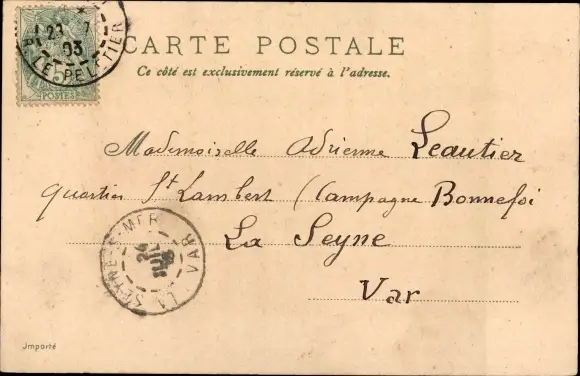 23 7
03
LE PELETIER
5
POSTES
CARTE POSTALE
Ce côté est exclusivement réservé à l'adresse.
Mademoiselle Adrienne Leautier
quartier St Lambert (Campagne Bonnefoi
La Seyne
Var
LA SEYNE-S-MER VAR
24
JUIL
Importé